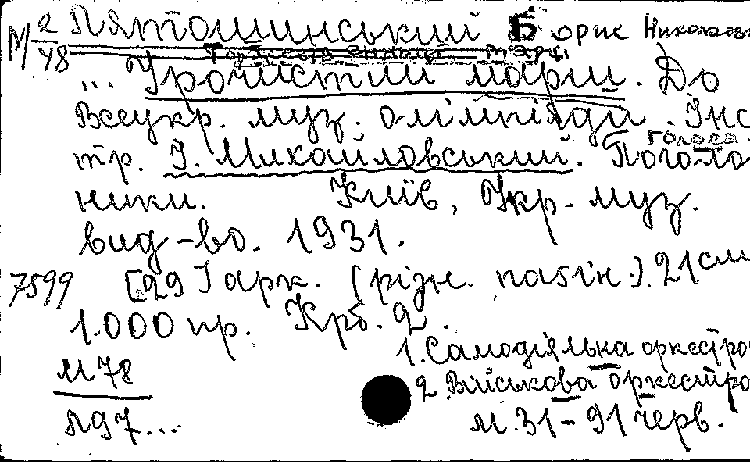 М 2/48 Лятошинський Борис Николаев
... Урочистий марш. До
Всеукр. муз. олімпіяди. Інс
тр. І. Михайловський. Пого ло
голоса.
ники. Київ, Укр. муз.
вид-во. 1931.
7599 [29] арк. (різн. пагін.). 21 см
1.000 пр. Крб. 2.
1. Самодіяльна оркестро
М78
2 Військова оркестро
Л97... М.31-91 черв.